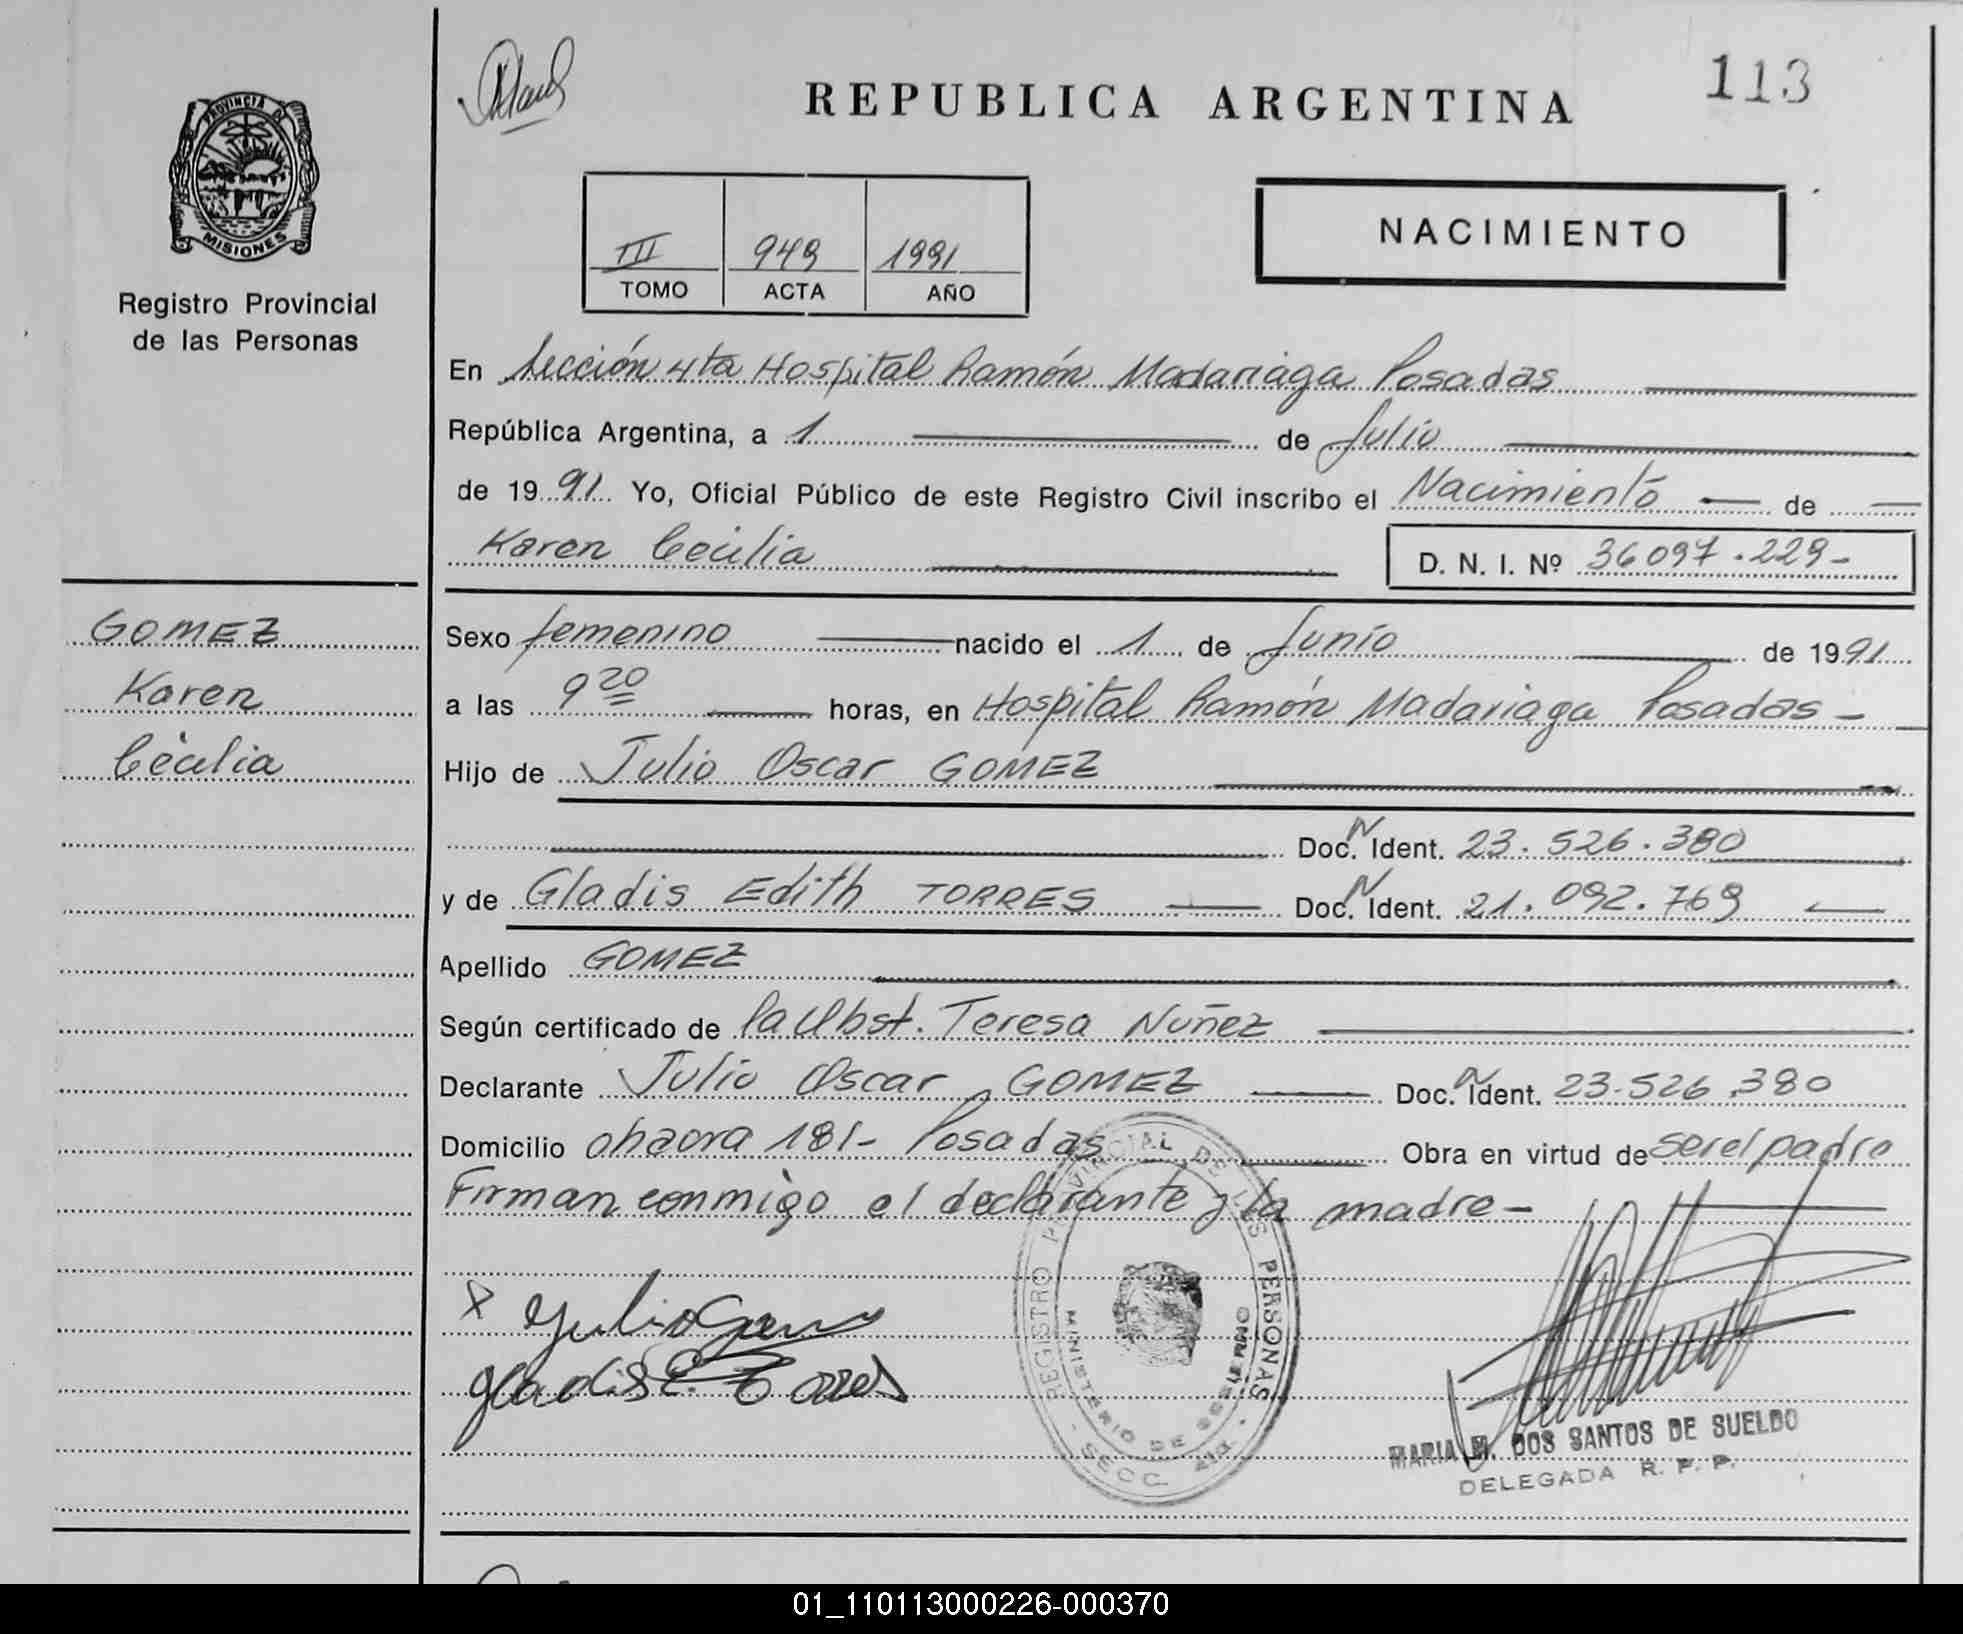 113
REPUBLICA ARGENTINA
PROVINCIA DE MISIONES
Registro Provincial
de las Personas
NACIMIENTO
III 949 1991
TOMO ACTA AÑO
En Sección 4ta Hospital Ramón Madariaga Posadas
República Argentina, a 1 de Julio
de 1991 Yo, Oficial Público de este Registro Civil inscribo el Nacimiento de
Karen Cecilia D. N. I. Nº 36097.229-
GOMEZ
Karen
Cecilia
Sexo femenino nacido el 1 de Junio de 1991
a las 9 20 horas, en Hospital Ramón Madariaga Posadas -
Hijo de Julio Oscar GOMEZ
Doc. N Ident. 23.526.380
y de Gladis Edith TORRES Doc. N Ident. 21.092.769
Apellido GOMEZ
Según certificado de la Obst. Teresa Nuñez
Declarante Julio Oscar GOMEZ Doc. N Ident. 23.526.380
Domicilio 181- Posadas Obra en virtud de ser el padre
Firman conmigo el declarante y la madre -
x Julio Gomez
Gladis E. Torres
REGISTRO PROVINCIAL DE LAS PERSONAS
MINISTERIO DE GOBIERNO
- SECC. 4ta -
MARIA M. DOS SANTOS DE SUELDO
DELEGADA R. P. P.
01_110113000226-000370